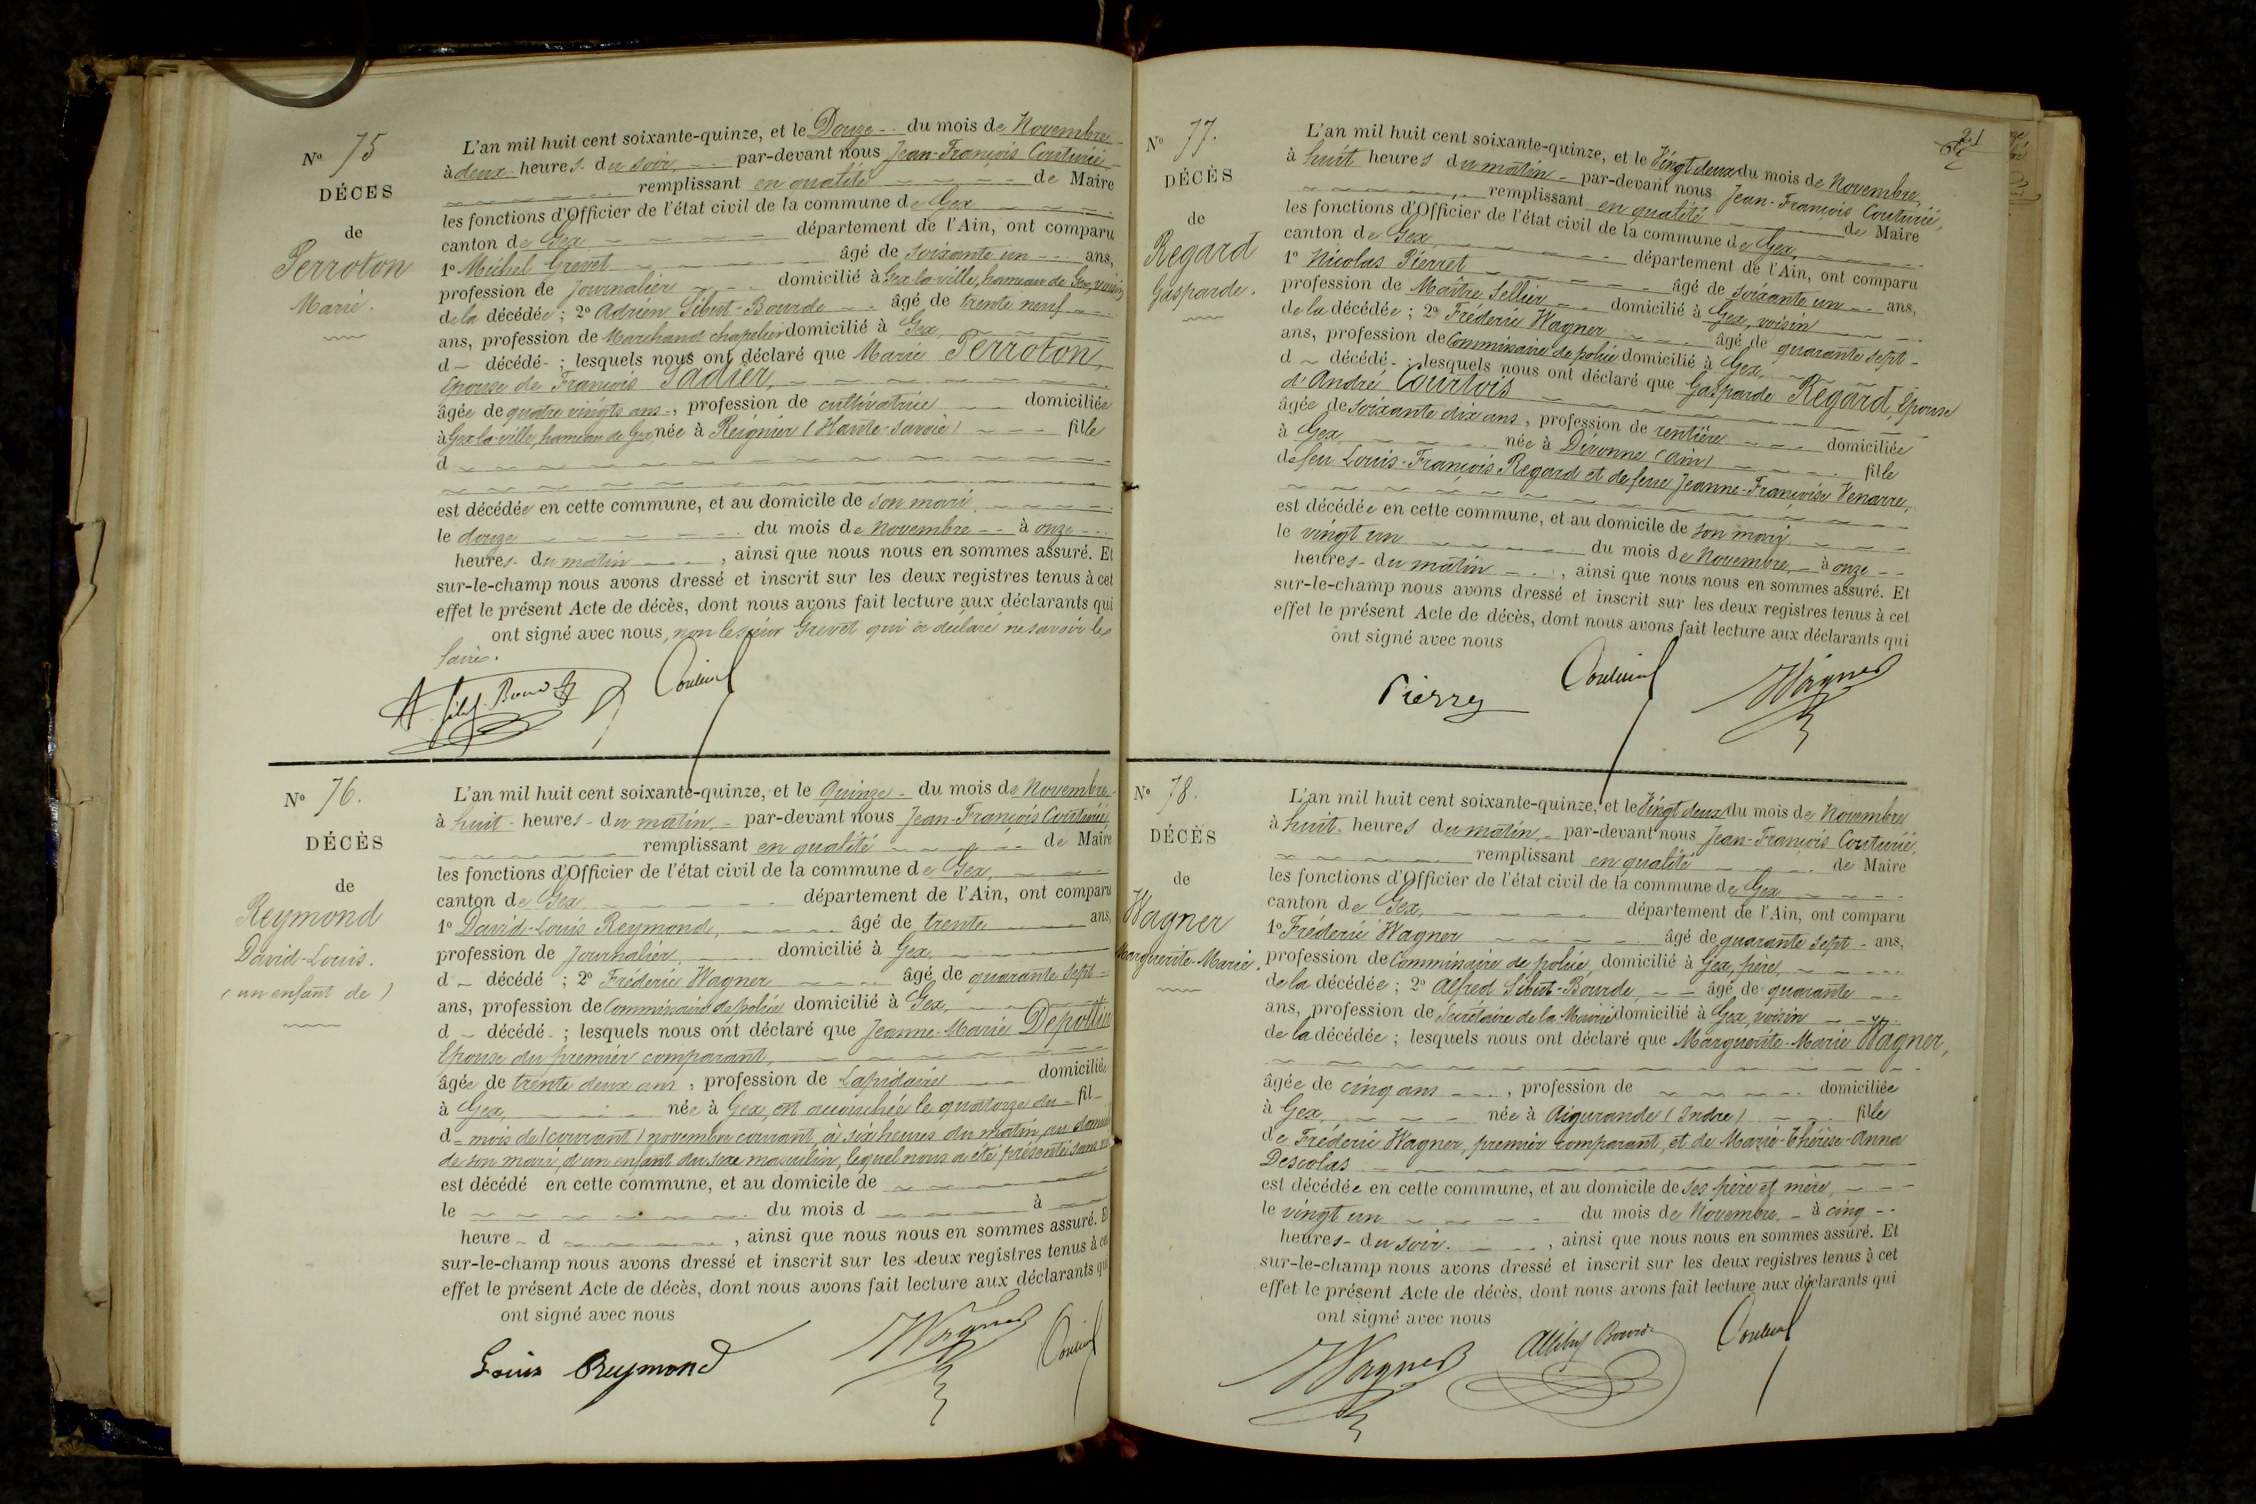 N° 75
DÉCES
de
Perroton
Marie.
L'an mil huit cent soixante-quinze, et le Douze du mois de Novembre
à deux heures du soir, par-devant nous Jean-François Couturié
remplissant en qualité de Maire
les fonctions d'Officier de l'état civil de la commune de Gex
canton de Gex département de l'Ain, ont comparu
1° Michel Grevet âgé de soixante un ans,
profession de journalier domicilié à Gex-la-ville, hameau de Gex, voisin
de la décédée ; 2° Adrien Sibut-Bourde âgé de trente neuf
ans, profession de Marchand chapelier domicilié à Gex,
d décédé ; lesquels nous ont déclaré que Marie Perroton,
Epouse de François Sadier,
âgée de quatre vingts ans, profession de cultivatrice domiciliée
à Gex-la-ville, hameau de Gex née à Reignier (Haute-Savoie) fille
d
est décédée en cette commune, et au domicile de son mari
le douze du mois de novembre à onze
heures du matin, ainsi que nous nous en sommes assuré. Et
sur-le-champ nous avons dressé et inscrit sur les deux registres tenus à cet
effet le présent Acte de décès, dont nous avons fait lecture aux déclarants qui
ont signé avec nous, non le sieur Grevet qui a déclaré ne savoir le
faire.
N° 76.
DÉCÈS
de
Reymond
David-Louis.
(un enfant de)
L'an mil huit cent soixante-quinze, et le Quinze du mois de Novembre
à huit heures du matin, par-devant nous Jean-François Couturié,
remplissant en qualité de Maire
les fonctions d'Officier de l'état civil de la commune de Gex,
canton de Gex département de l'Ain, ont comparu
1° David-Louis Reymond, âgé de trente ans,
profession de journalier domicilié à Gex,
d décédé ; 2° Fréderic Wagner âgé de quarante sept
ans, profession de Commissaire de police domicilié à Gex,
d décédé ; lesquels nous ont déclaré que Jeanne-Marie Depottin
Epouse du premier comparant,
âgée de trente deux ans, profession de Lapidaire domiciliée
à Gex, née à Gex, est accouchée le quatorze du fil
d mois de (courant) novembre courant, à six heures du matin, au domicile
de son mari, d'un enfant du sexe masculin, lequel nous a été présenté sans vie
est décédé en cette commune, et au domicile de
le du mois d à
heure d , ainsi que nous nous en sommes assuré. Et
sur-le-champ nous avons dressé et inscrit sur les deux registres tenus à cet
effet le présent Acte de décès, dont nous avons fait lecture aux déclarants qui
ont signé avec nous
Louis Reymond Wagner
N° 77.
DÉCÈS
de
Regard
Gasparde.
L'an mil huit cent soixante-quinze, et le Vingt deux du mois de Novembre,
à huit heures du matin par-devant nous Jean-François Couturié,
remplissant en qualité de Maire
les fonctions d'Officier de l'état civil de la commune de Gex,
canton de Gex, département de l'Ain, ont comparu
1° Nicolas Pierret âgé de soixante un ans,
profession de Maître Sellier domicilié à Gex, voisin
de la décédée ; 2° Fréderic Wagner âgé de quarante sept
ans, profession de Commissaire de police domicilié à Gex,
d décédé ; lesquels nous ont déclaré que Gasparde Regard, Epouse
d'André Courtois
âgée de soixante dix ans, profession de rentière domiciliée
à Gex, née à Divonne (Ain) fille
de feu Louis-François Regard et de feue Jeanne-Françoise Venarre,
est décédée en cette commune, et au domicile de son mari
le vingt un du mois de Novembre, à onze
heures du matin, ainsi que nous nous en sommes assuré. Et
sur-le-champ nous avons dressé et inscrit sur les deux registres tenus à cet
effet le présent Acte de décès, dont nous avons fait lecture aux déclarants qui
ont signé avec nous
Wagner
N° 78.
DÉCÈS
de
Wagner
Marguerite-Marie.
L'an mil huit cent soixante-quinze, et le Vingt deux du mois de Novembre
à huit heures du matin, par-devant nous Jean-François Couturié,
remplissant en qualité de Maire
les fonctions d'Officier de l'état civil de la commune de Gex
canton de Gex, département de l'Ain, ont comparu
1° Fréderic Wagner âgé de quarante sept ans,
profession de Commissaire de police, domicilié à Gex, père,
de la décédée ; 2° Alfred Sibut-Bourde, âgé de quarante
ans, profession de Secrétaire de la Mairie domicilié à Gex, voisin
de la décédée ; lesquels nous ont déclaré que Marguerite-Marie Wagner,
âgée de cinq ans, profession de domiciliée
à Gex, née à Aigurande (Indre) fille
de Fréderic Wagner, premier comparant, et de Marie-Thérèse-Anna
Descolas
est décédée en cette commune, et au domicile de ses père et mère,
le vingt un du mois de Novembre, à cinq
heures du soir, ainsi que nous nous en sommes assuré. Et
sur-le-champ nous avons dressé et inscrit sur les deux registres tenus à cet
effet le présent Acte de décès, dont nous avons fait lecture aux déclarants qui
ont signé avec nous
Wagner